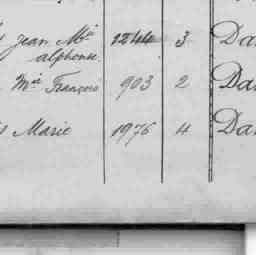 Jean Mie 1244 3 Da
alphonse.
Mie François 903 2 Da
Marie 1976 4 Da